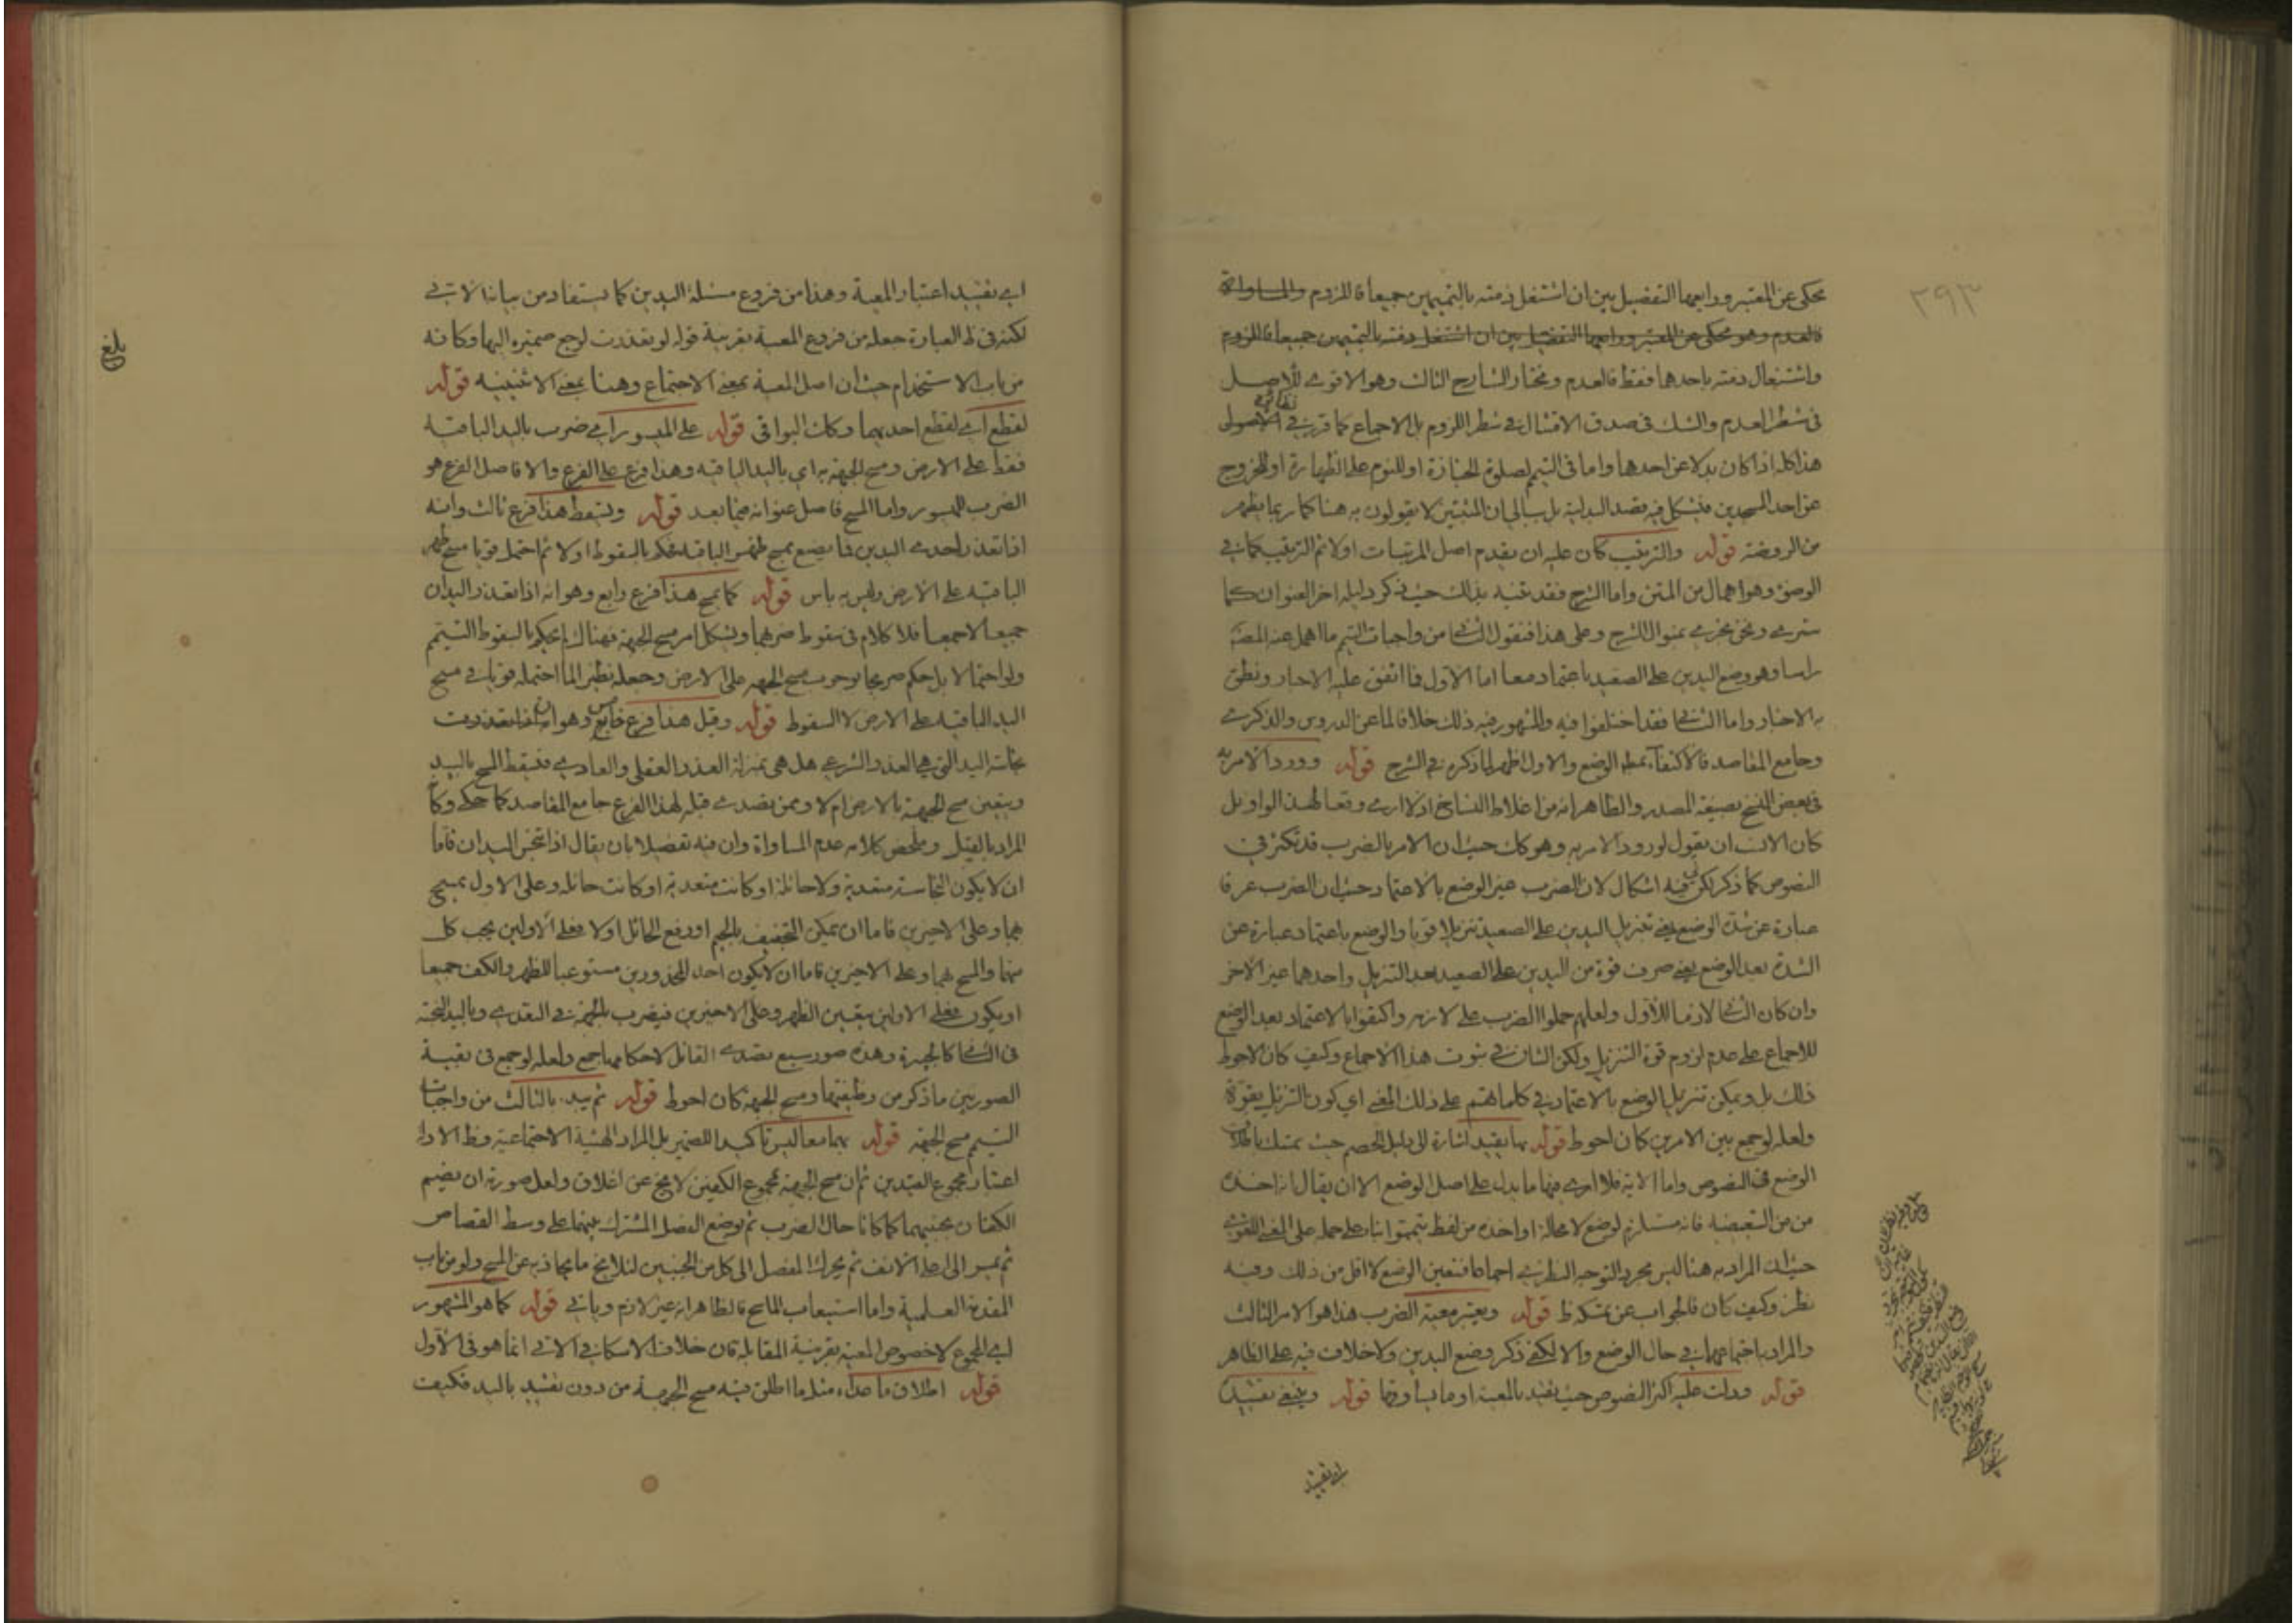 ٢٩٣
محكى عن المعتبر ورابعها التفصيل بين ان اشتغل ذمته بالتيممين جميعا فاللزوم والمساواة
فالعدم وهو محكى عن المعتبر ورابعها التفصيل بين ان اشتغل ذمته بالتيممين جميعا فاللزوم
واشتغال ذمته باحدهما فقط فالعدم ومختار الشارح الثالث وهو الاقوى للاصل
فى شطر العدم والشك فى صدق الامتثال فى شطر اللزوم بل الاجماع كما قرر فى الاصول
هذا كله اذا كان بدلا عن احدهما واما فى التيمم لصلوة الجنازة او للنوم على الطهارة او للخروج
عن احد المسجدين فيشكل فيه قصد البدلية بل ببالى ان المثبتين لا يقولون به هنا كما ربما يظهر
من الروضة قوله والترتيب كان عليه ان يقدم اصل المرتبات اولا ثم الترتيب كما فى
الوضوء وهو اهمال من المتن واما الشرح فقد تنبه بذلك حيث ذكر دليله اخر العنوان كما
سترى ونحن نجرى بمنوال الشرح وعلى هذا فنقول الثانى من واجبات التيمم ما اهمل عنه المصنف
راسا وهو وضع اليدين على الصعيد باعتماد معا اما الاول فما اتفق عليه الاحبار ونطق
به الاخبار واما الثانى فقد اختلفوا فيه والمشهور فيه ذلك خلافا لما عن الدروس والذكرى
وجامع المقاصد فالاكتفاء بمطلق الوضع والاول اظهر لما ذكره فى الشرح قوله وورود الامر به
فى بعض النسخ بصيغة المصدر والظاهر انه من اغلاط النساخ اذ لا ارى وقعا لهذا الواو بل
كان الانسب ان يقول لورود الامر به وهو كك حيث ان الامر بالضرب قد تكثر فى
النصوص كما ذكر لكن فيه اشكال لان الضرب غير الوضع بالاعتماد حيث ان الضرب عرفا
عبارة عن شدة الوضع يعنى تنزيل اليدين على الصعيد تنزيلا قويا والوضع باعتماد عبارة عن
الشدة بعد الوضع يعنى صرف قوة من اليدين على الصعيد بعد التنزيل واحدهما غير الاخر
وان كان الثانى لازما للاول ولعلهم حملوا الضرب على لازمه واكتفوا بالاعتماد بعد الوضع
للاجماع على عدم لزوم قوة التنزيل ولكن الشان فى ثبوت هذا الاجماع وكيف كان الاحوط
ذلك بل ويمكن تنزيل الوضع بالاعتماد فى كلماتهم على ذلك المعنى اى كون التنزيل بقوة
ولعله لو جمع بين الامرين كان احوط قوله بها يقيد اشارة الى دليل الخصم حيث تمسك باطلاق
الوضع فى النصوص واما الاية فلا ارى فيها ما يدل على اصل الوضع الا ان يقال انه اخذه
من من التبعيضية فانه مستلزم لوضع لا محالة او اخذه من لفظ تيمموا بناء على حمله على المعنى اللغوى
حيث ان المراد به هنا ليس مجرد التوجه النظرى اجماعا فتعين الوضع لا اقل من ذلك وفيه
نظر وكيف كان فالجواب عن تمسكه ظ قوله ويعتبر معية الضرب هذا هو الامر الثالث
والمراد باجتماعهما فى حال الوضع والا لكفى ذكر وضع اليدين ولا خلاف فيه على الظاهر
قوله ودلت عليه اكثر النصوص حيث يقيد بالمعية او ما يساوقها قوله وينبغى تقييد
اى تقييد
اى تقييد اعتبار المعية وهذا من فروع مسئلة اليدين كما يستفاد من بيانه الاتى
لكنه فى ظ العبارة جعله من فروع المعية بقرينة قوله لو تعذرت لرجع ضميره اليها وكانه
من باب الاستخدام حيث ان اصل المعية بمعنى الاجتماع وهنا بمعنى الاثنينية قوله
لقطع اى لقطع احديهما وكك البواقى قوله على الميسور اى ضرب باليد الباقية
فقط على الارض ومسح الجبهة به اى باليد الباقية وهذا فرع على الفرع والا فاصل الفرع هو
الضرب الميسور واما المسح فاصل عنوانه فيما بعد قوله ويسقط هذا فرع ثالث وانه
اذا تعذر احدى اليدين فما يصنع بمسح ظهر الباقية فحكم بالسقوط اولا ثم احتمل قويا مسح ظهر
الباقية على الارض وليس به باس قوله كما يمسح هذا فرع رابع وهو انه اذا تعذر اليدان
جميعا لا جمعا فلا كلام فى سقوط ضربهما ويشكل امر مسح الجبهة فهناك لم يحكم بالسقوط التيمم
ولو احتمالا بل حكم صريحا بوجوب مسح الجبهة على الارض وجعله نظير الما احتمله قويا فى مسح
اليد الباقية على الارض لا السقوط قوله وقيل هذا فرع خامس وهو انه اذا تعذرت
نجاسة اليد التى هى العذر الشرعى هل هى بمنزلة العذر العقلى والعادى فيسقط المسح باليد
ويتعين مسح الجبهة بالارض ام لا وممن تصدى قبله لهذا الفرع جامع المقاصد كما حكى وكان
المراد بالقيل وملخص كلامه عدم المساواة وان فيه تفصيلا بان يقال اذا تنجس اليدان فاما
ان لا يكون النجاسة متعدية ولا حائلة او كانت متعدية او كانت حائلة وعلى الاول يمسح
بهما وعلى الاخيرين فاما ان يمكن التجفيف او رفع الحائل اولا فعلى الاولين يجب كل
منهما والمسح بهما وعلى الاخيرين فاما ان لا يكون احد المحذورين مستوعبا للظهر والكف جميعا
او يكون فعلى الاولين يتعين الظهر وعلى الاخيرين فيضرب بالجبهة فى التعدى وباليد النجسة
فى الثانى كالجبيرة وهذه صور سبع تصدى القائل لاحكامها اجمع ولعله لو جمع فى بقية
الصورتين ما ذكر من وظيفتهما ومسح الجبهة كان احوط قوله ثم يبدء بالثالث من واجبات
التيمم مسح الجبهة قوله بهما معا ليس تاكيدا للضمير بل المراد الهيئة الاجتماعية وظ الاداء
اعتبار مجموع القيدين ثم ان مسح الجبهة بمجموع الكفين لا يخ عن اغلاق ولعل صورته ان يضم
الكفان بجنبيهما كما كانا حال الضرب ثم يوضع الفصل المشترك بينهما على وسط القصاص
ثم يمسح الى اعلى الانف ثم يحرك المفصل الى كل من الجنبين لئلا يخرج ما يحاذيه عن المسح ولو من باب
المقدمة العلمية واما استيعاب الماسح فالظاهر انه غير لازم وياتى قوله كما هو المشهور
اى المجموع لا خصوص المعية بقرينة المقابلة فان خلاف الاسكافى الاتى انما هو فى الاول
قوله اطلاق ما عداه مثل ما اطلق فيه مسح الجبهة من دون تقييد باليد فكيف
بلغ